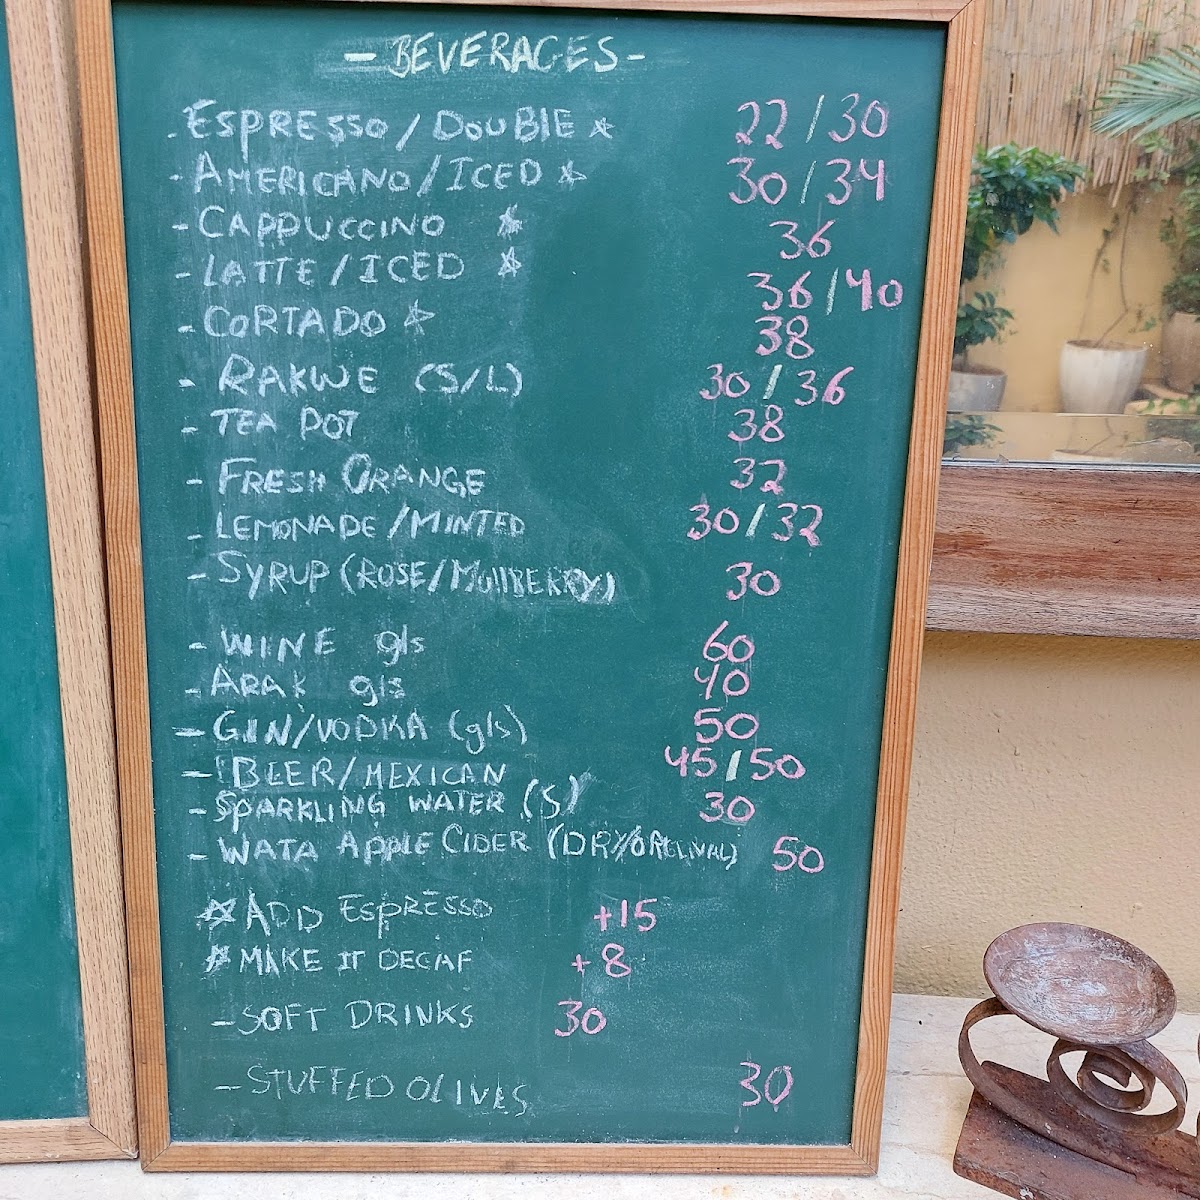 - BEVERAGES -
- ESPRESSO / DOUBLE ☆ 22 / 30
- AMERICANO / ICED ☆ 30 / 34
- CAPPUCCINO ☆ 36
- LATTE / ICED ☆ 36 / 40
- CORTADO ☆ 38
- RAKWE (S/L) 30 / 36
- TEA POT 38
- FRESH ORANGE 32
- LEMONADE / MINTED 30 / 32
- SYRUP (ROSE/MullBERRY) 30
- WINE gls 60
- ARAK gls 40
- GIN/VODKA (gls) 50
- BEER/MEXICAN 45 / 50
- SPARKLING WATER (S) 30
- WATA APPLE CIDER (DRY/ORGINAL) 50
☆ ADD ESPRESSO +15
☆ MAKE IT DECAF +8
- SOFT DRINKS 30
- STUFFED OLIVES 30